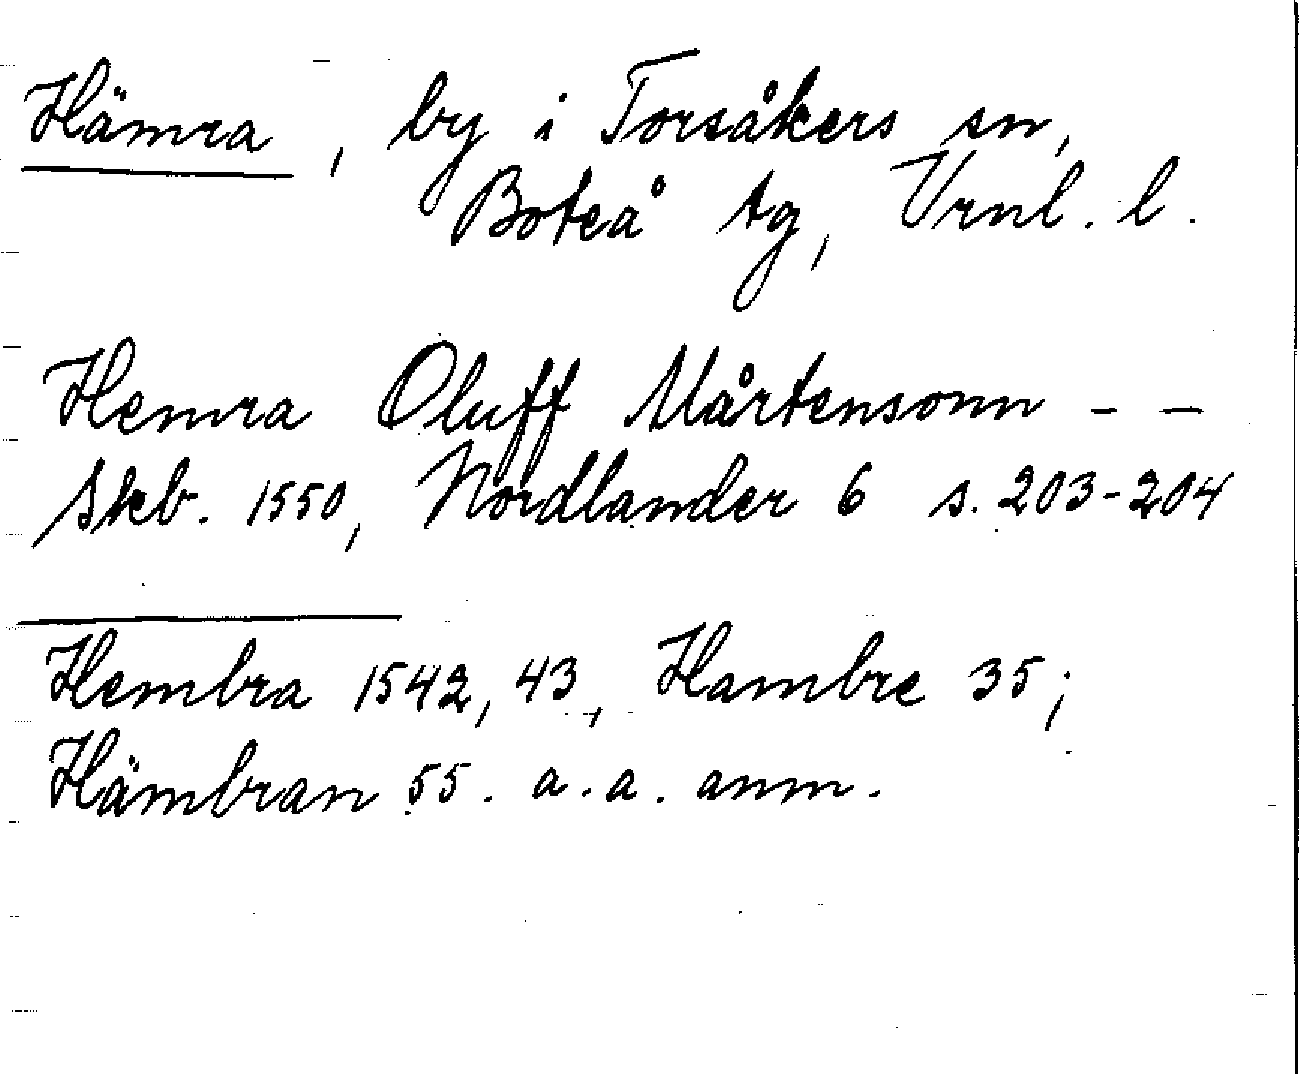 Hämra, by i Torsåkers sn,
Boteå tg, Vrnl. l.
Hemra Oluff Mårtensonn - -
Skb. 1550, Nordlander 6 s. 203-204
Hembra 1542, 43, Hambre 35;
Hämbran 55. a.a. anm.